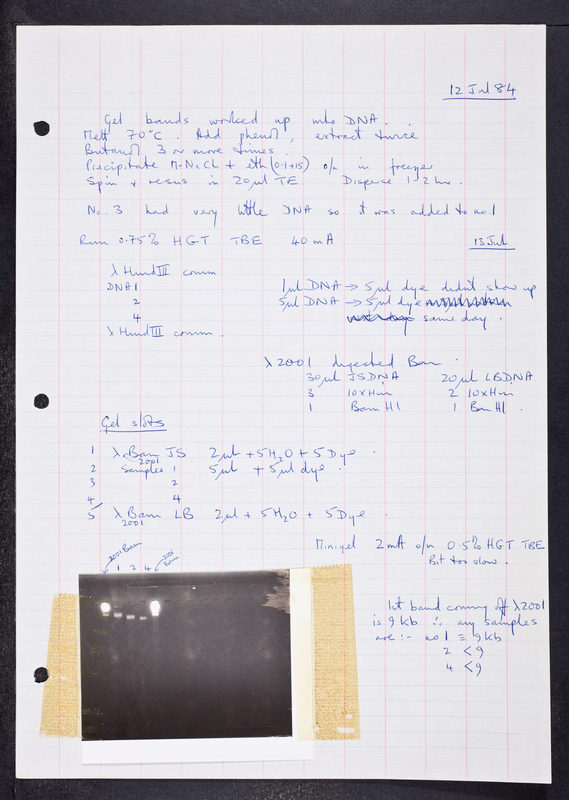 12 Jul 84
Gel bands worked up into DNA.
Melt 70°C. Add phenol, extract twice
Butanol 3 or more times.
Precipitate M-NaCl + eth (0.1+15) o/n in freezer
Spin & resus in 20µl TE Disperse 1-2 hr.
No. 3 had very little DNA so it was added to no.1
Run 0.75% HGT TBE 40mA
13 Jul
λ HindIII comm
DNA 1
2
4
λ HindIII comm.
1µl DNA → 5µl dye didn't show up
5µl DNA → 5µl dye
same day.
λ2001 digested Bam.
30µl JSDNA 20µl LBDNA
3 10xHin 2 10xHin
1 Bam H1 1 Bam H1.
Gel slots
1 λ Bam JS 2µl + 5H2O + 5Dye.
2001
2 Samples 1 5µl + 5µl dye.
3 2
4 4
5 λ Bam LB 2µl + 5H2O + 5Dye.
2001
Minigel 2mA o/n 0.5% HGT TBE
Bit too slow.
2001 Bam
1 2 4
2001 Bam
1st band coming off λ2001
is 9kb ∴ my samples
are :- no 1 ≡ 9kb
2 <9
4 <9